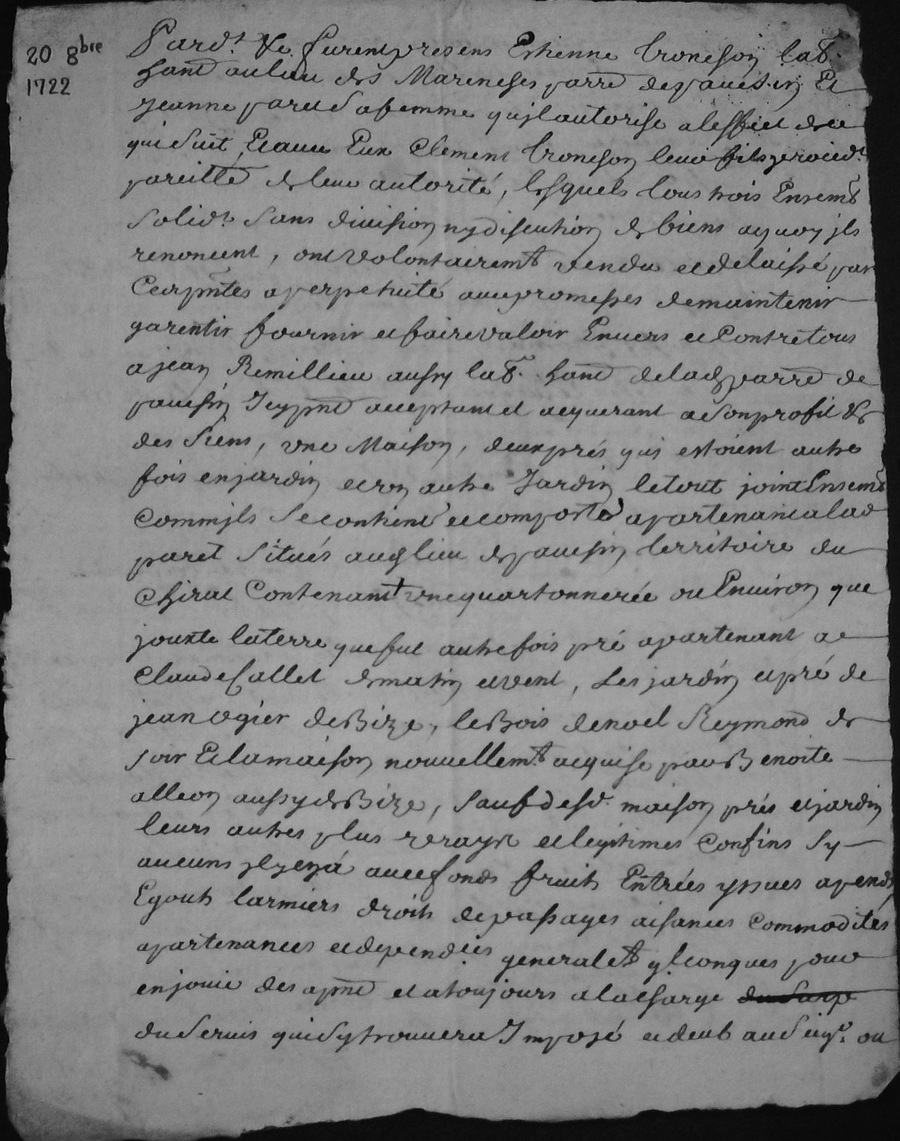 20 8bre
1722
Pard.t &c furent presens Estienne Troncson lab.
hant au lieu des Mareneses parre de pavesin Et
jeanne paret sa femme quil autorise a leffect de ce
qui suit, Et avec Eux Clement Troncson leur fils
pareille de leur autorité, lesquels tous trois Ensemb
solid.t sans division ny discution de biens a quoy jls
renoncent, ont volontairemt vendu et delaissé par
Ces pntes a perpetuité avec promesses de maintenir
garentir fournir et faire valoir Envers et Contre tous
a jean Remillieu aussy lab. hant de lad parre de
pavesin Jcy pnt acceptant et acquerant a son profit &
des siens, une Maison, deux prés qui estoient autre
fois en jardin et un autre Jardin le tout joint Ensemb
Comm jls se contient et comporte apartenant a lad
paret situés aud lieu de pavesin territoire du
Chirat Contenant une quartonnerée ou Environ que
jouxte la terre que fut autrefois pré apartenant a
Claude Callet de matin et vent, Les jardin et pré de
jean ogier de Bize, le Bois de noel Reymond de
soir Et la maison nouvellemt acquise par Benoite
alleon aussy de Bize, sauf desd. maison prés et jardin
leurs autres plus vrays et legitimes Confins sy
aucuns jl y en a avec fonds fruits Entrées yssues apends
Egouts larmiers droits de passages aisances Commodités
apartenances et dependces generalemt qlconques pour
en jouir des apnt et a toujours a la charge
du servis qui sy trouvera Jmposé et deub au seigr. ou